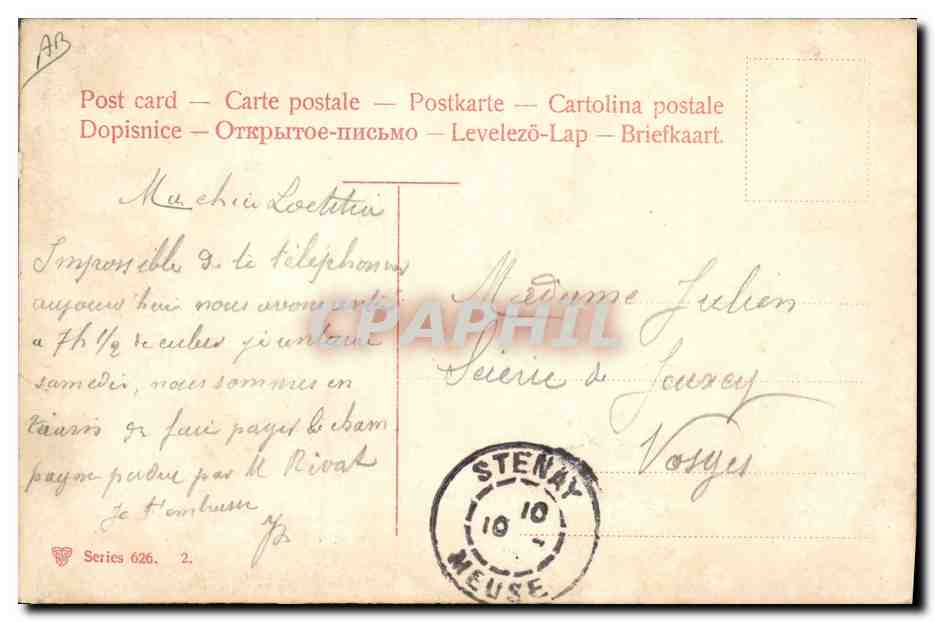 AB
Post card — Carte postale — Postkarte — Cartolina postale
Dopisnice — Открытое-письмо — Levelezö-Lap — Briefkaart.
Ma chère Loetitia
Impossible de te téléphoner
aujourd'hui nous avons
a 7h 1/2 de
samedi, nous sommes en
de faire payer le cham
pagne perdu par M Rivat
Je t'embrasse
Madame Julien
Scierie de Jouxey
Vosges
CPAPHIL
STENAY
10
10
MEUSE
Series 626. 2.